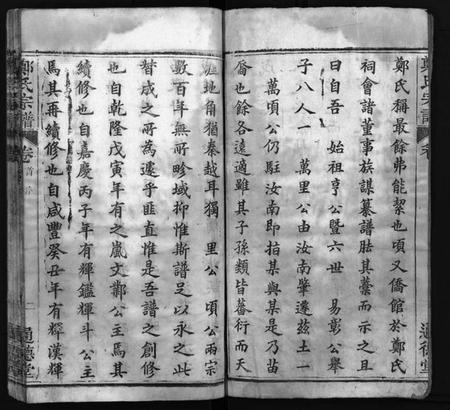 鄭氏稱最餘弗能絜也頃又僑館於鄭氏
祠會諸董事族謀纂譜胠其藁而示之且
曰自吾 始祖亨公暨六世 易彰公舉
子八人一 萬里公由汝南肇遷茲土一
萬頃公仍駐汝南即指某與某是乃苗
裔也餘各遠適雖其子孫類皆蕃衍而天
涯地角猶秦越耳獨 里公 頃公兩宗
數百年無所畛域抑惟斯譜足以永之此
譜成之所為遷乎匪直惟是吾譜之創修
也自乾隆戊寅年有之嵐文鄰公主焉其
續修也自嘉慶丙子年有輝鑑輝斗公主
焉其再續修也自咸豐癸丑年有輝漢輝
鄭氏宗譜
卷
首
二
通德堂
鄭氏宗譜
卷
通德堂